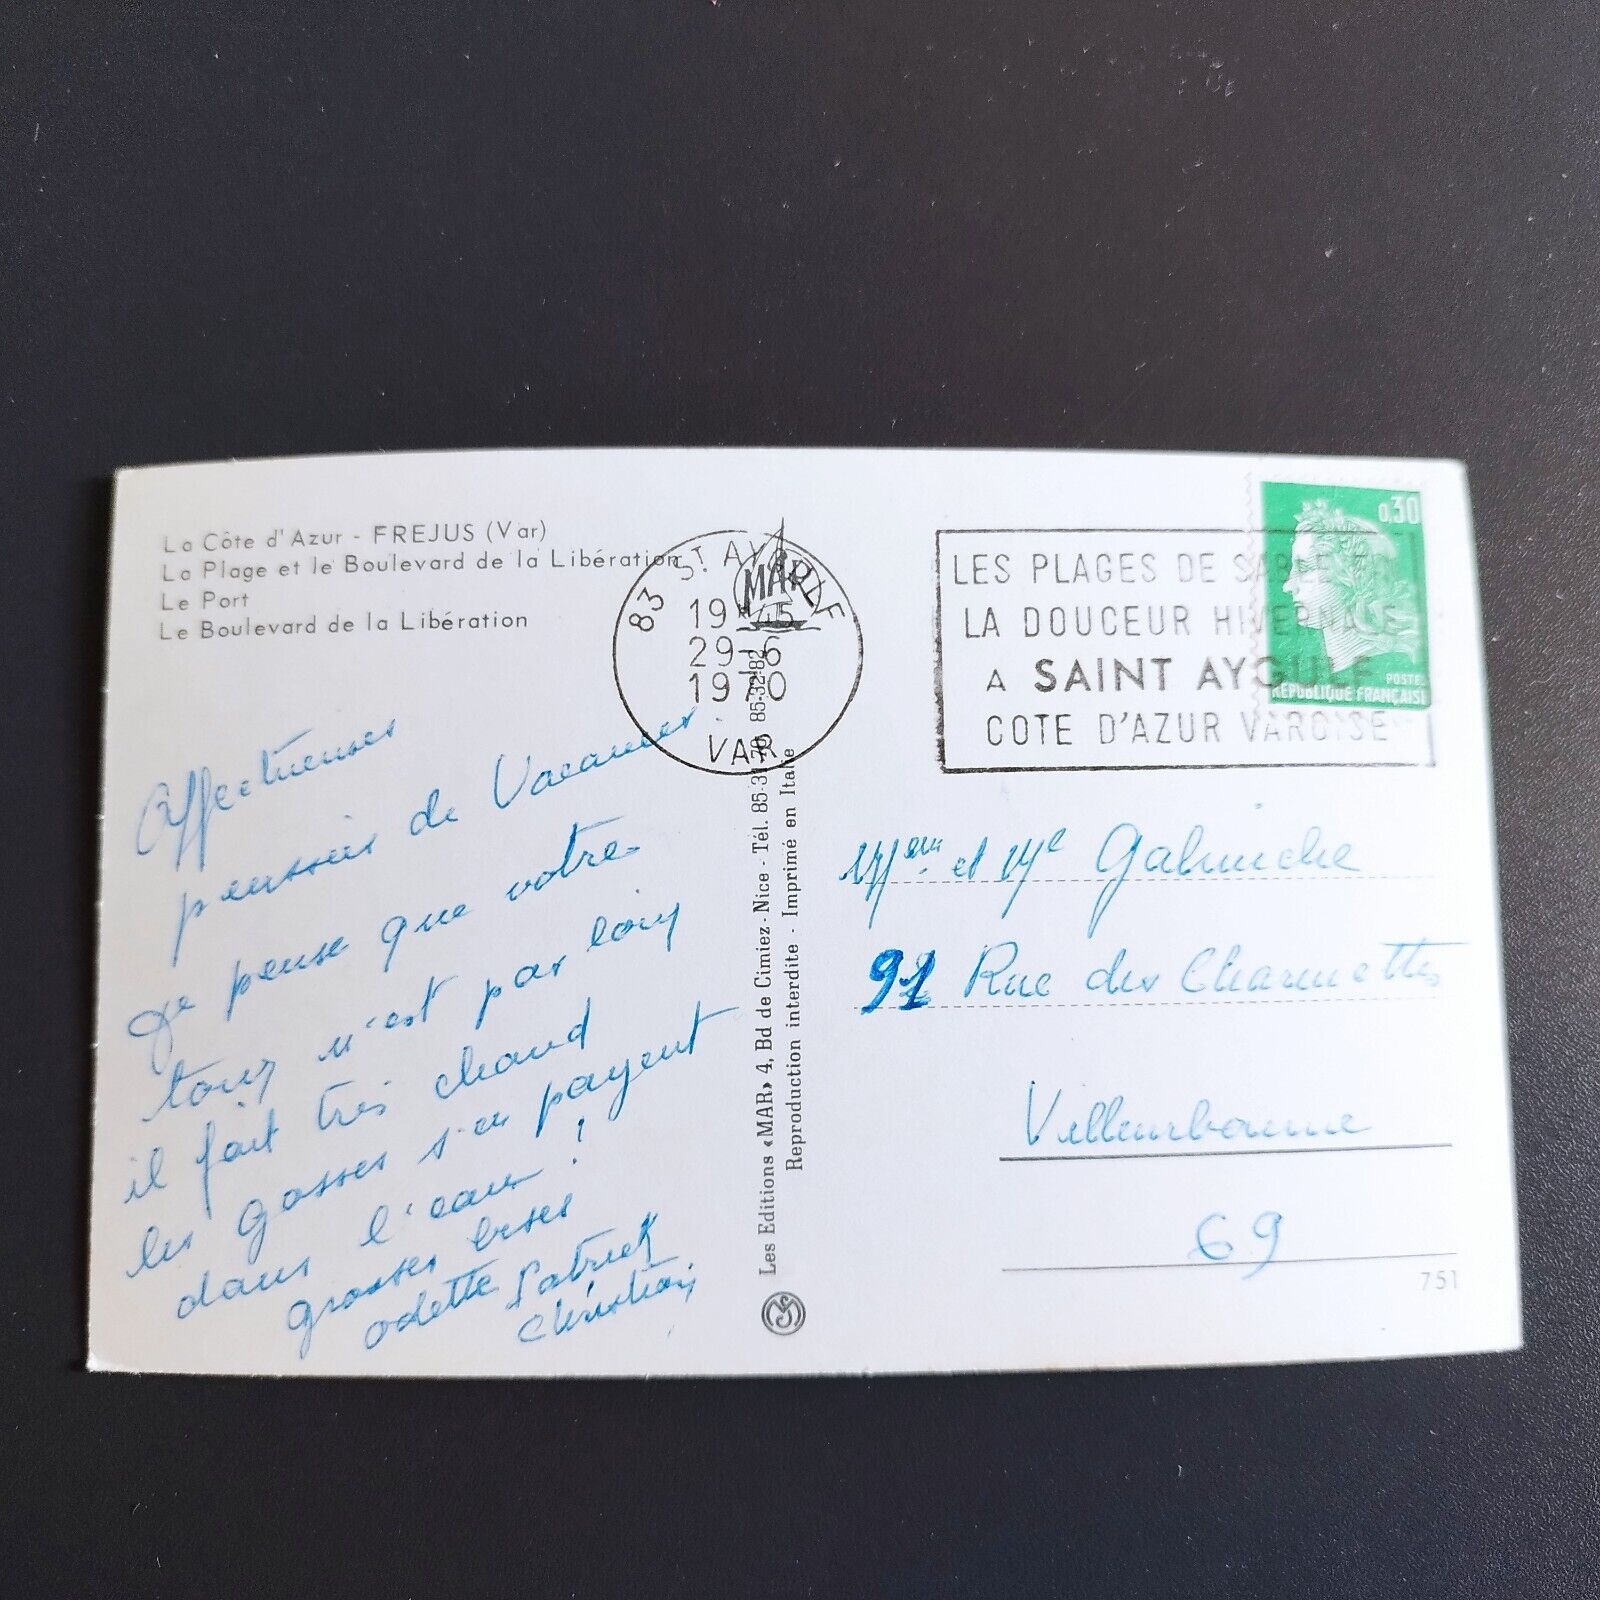 La Côte d'Azur - FREJUS (Var)
La Plage et le Boulevard de la Libération
Le Port
Le Boulevard de la Libération
Affectueuses
pensées de Vacances.
Je pense que votre
tour n'est pas loin
il fait très chaud
les gosses s'en payent
dans l'eau !
grosses bises
Odette Patrick
Christian
Les Editions «MAR» 4, Bd de Cimiez - Nice - Tél. 85-37-70 85-32-82
Reproduction interdite - Imprimé en Italie
MAR
83 ST AYGULF
19 H 45
29-6
1970
VAR
LES PLAGES DE SABLE
LA DOUCEUR HIVERNALE
A SAINT AYGULF
COTE D'AZUR VAROISE
0,30
POSTES
REPUBLIQUE FRANÇAISE
et
91 Rue des Charmettes
Villeurbanne
69
751